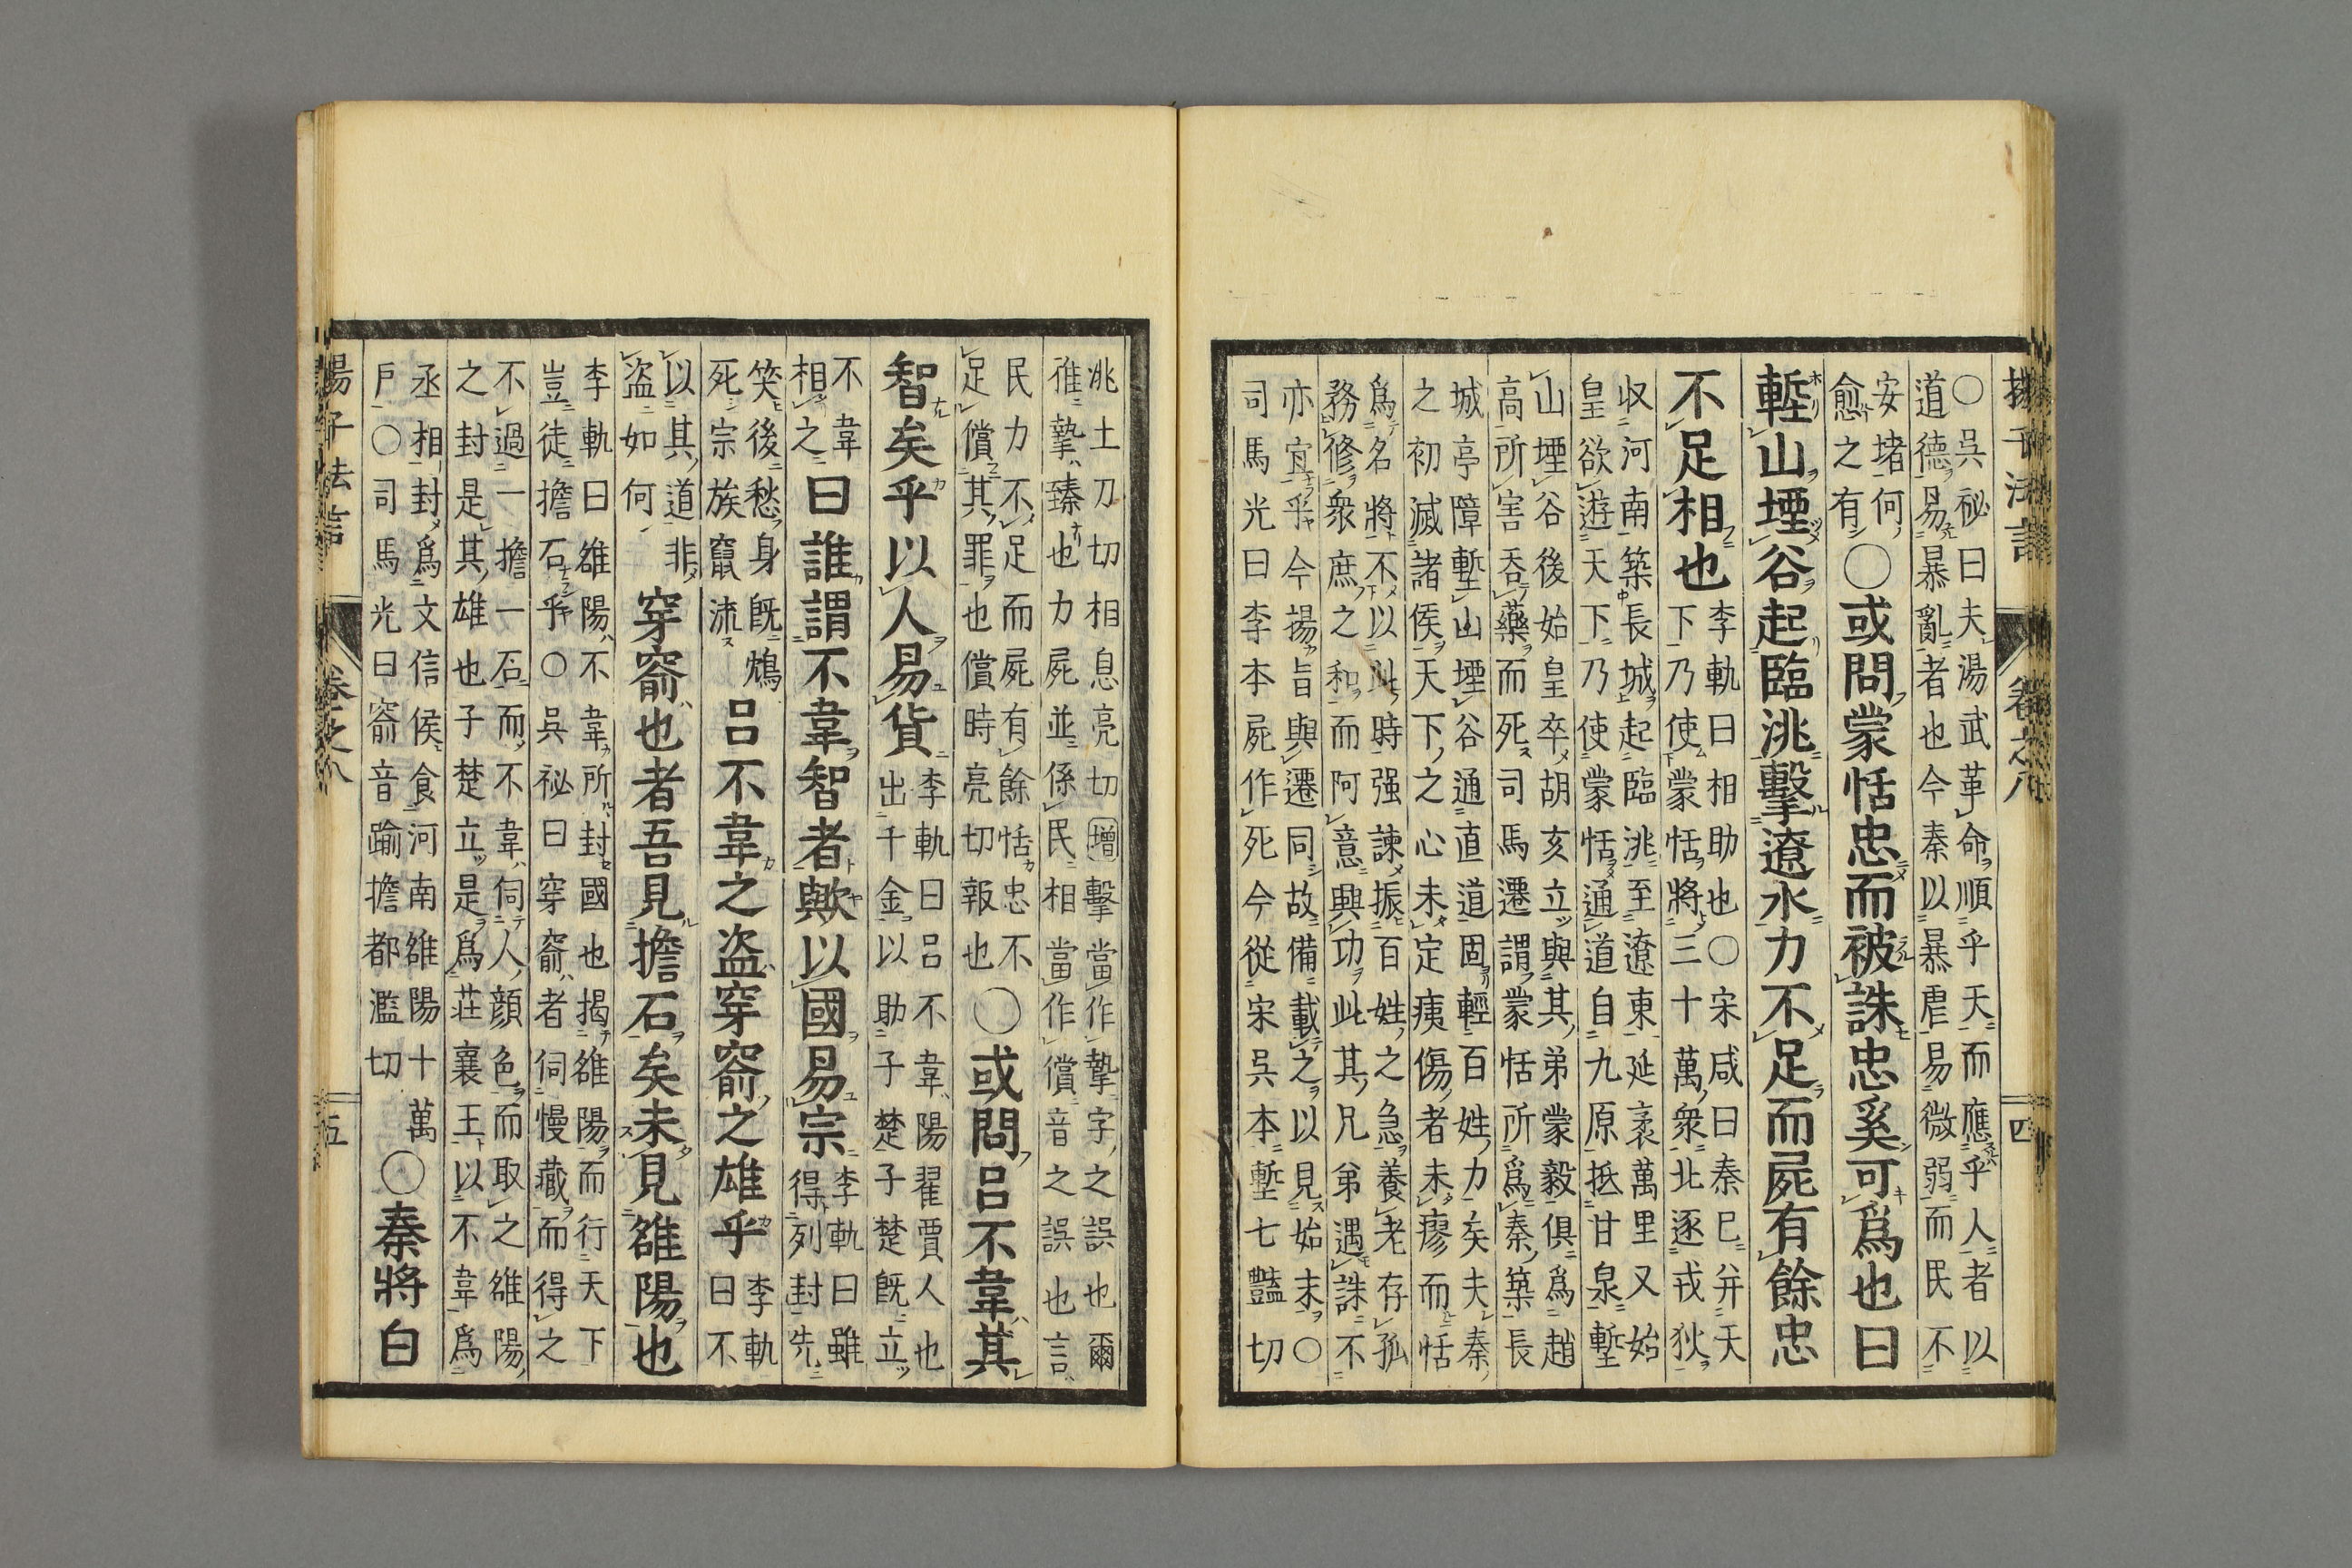 揚子法言 卷之八 四
○吳祕曰夫湯武革命順乎天而應乎人者以
道德易暴亂者也今秦以暴虐易微弱而民不
安堵何
愈之有
○或問蒙恬忠而被誅忠奚可爲也曰
塹山堙谷起臨洮擊遼水力不足而屍有餘忠
不足相也
李軌曰相助也○宋咸曰秦已并天
下乃使蒙恬將三十萬衆北逐戎狄
収河南築長城起臨洮至遼東延袤萬里又始
皇欲遊天下乃使蒙恬通道自九原抵甘泉塹
山堙谷後始皇卒胡亥立與其弟蒙毅俱爲趙
高所害吞藥而死司馬遷謂蒙恬所爲秦築長
城亭障塹山堙谷通直道固輕百姓力矣夫秦
之初滅諸侯天下之心未定痍傷者未瘳而恬
爲名將不以此時强諫振百姓之急養老存孤
務修衆庶之和而阿意興功此其兄弟遇誅不
亦宜乎今揚旨與遷同故備載之以見始末○
司馬光曰李本屍作死今從宋吳本塹七豔切
洮土刀切相息亮切增擊當作摯字之誤也爾
雅摯臻也力屍並係民相當作償音之誤也言
民力不足而屍有餘恬忠不
足償其罪也償時亮切報也
○或問呂不韋其
智矣乎以人易貨
李軌曰呂不韋陽翟賈人也
出千金以助子楚子楚既立
不韋
相之
曰誰謂不韋智者歟以國易宗
李軌曰雖
得列封先
笑後愁身既鴆
死宗族竄流
呂不韋之盜穿窬之雄乎
李軌
曰不
以其道非
盜如何
穿窬也者吾見擔石矣未見雒陽也
李軌曰雒陽不韋所封國也揭雒陽而行天下
豈徒擔石乎○吳祕曰穿窬者伺慢藏而得之
不過一擔一石而不韋伺人顔色而取之雒陽
之封是其雄也子楚立是爲莊襄王以不韋爲
丞相封爲文信侯食河南雒陽十萬
戶○司馬光曰窬音踰擔都濫切
○秦將白
揚子法言 卷之八 五